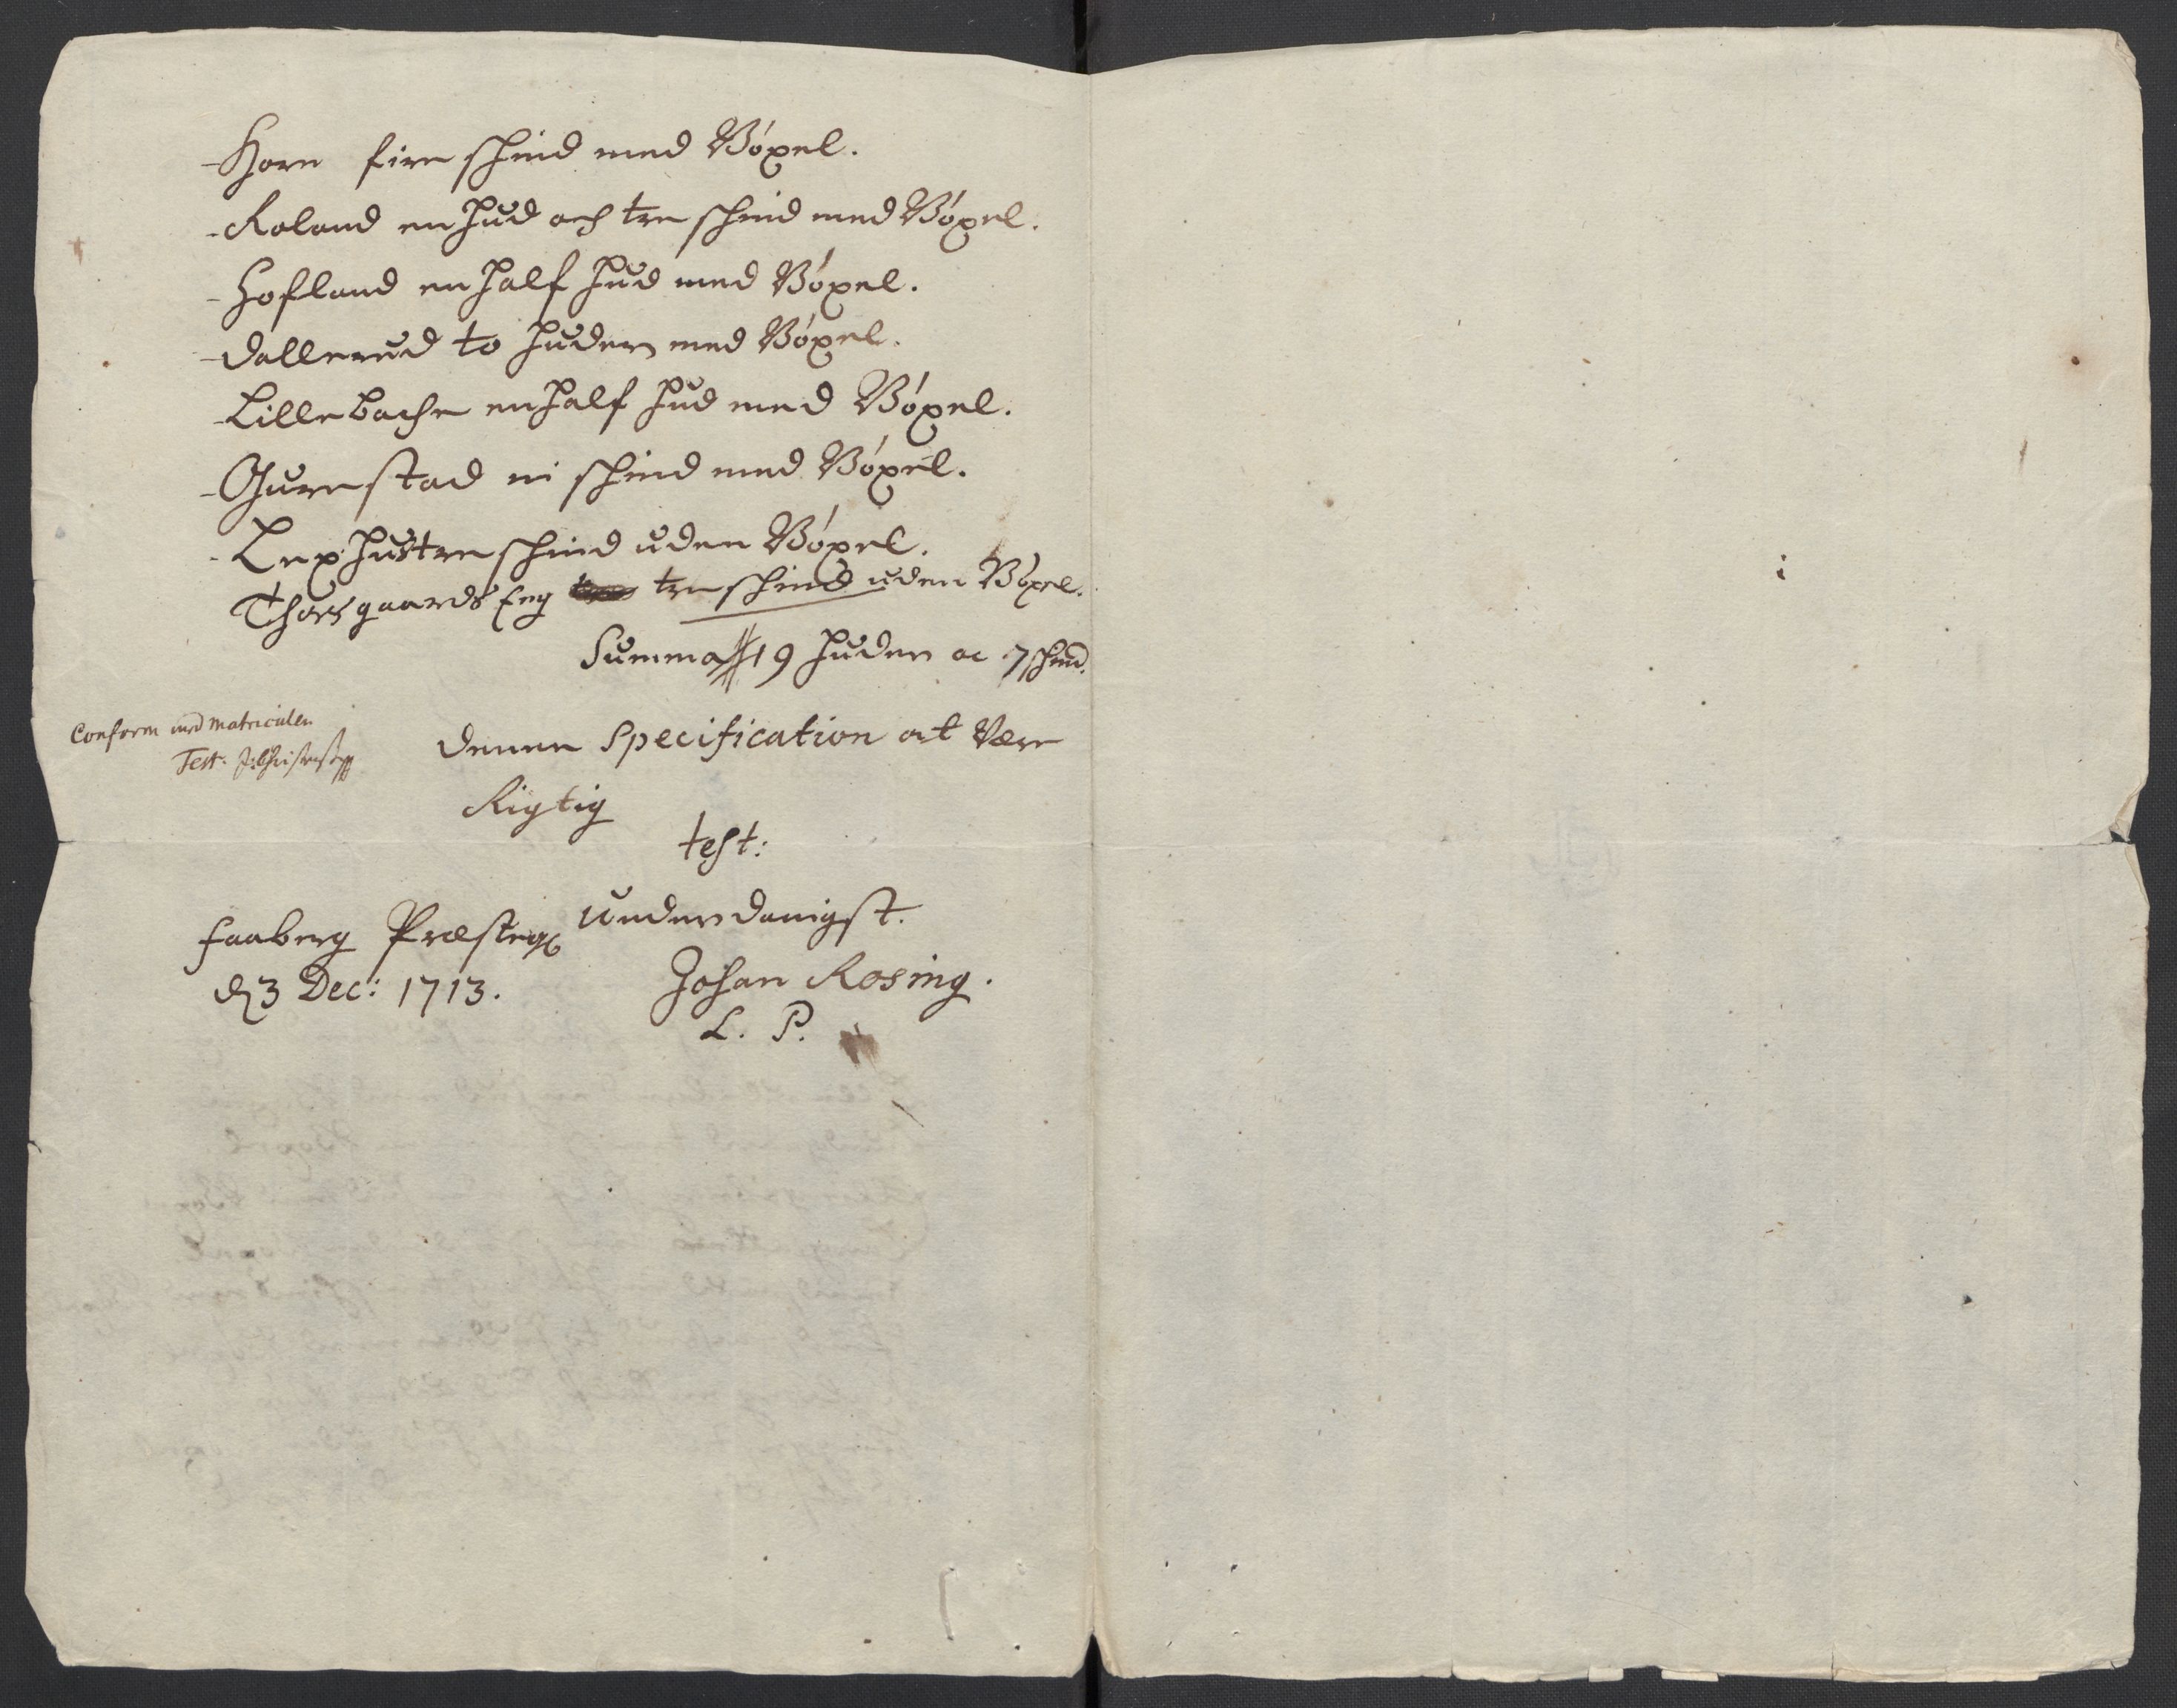 - Horn fire schind med Bóxel.
- Roland en Hud och tre schind med Bóxel.
- Hofland en half Hud med Bóxel.
- Dallerud to Huder med Bóxel.
- Lillebache en half Hud med Bóxel.
- Gurestad ni schind med Bóxel.
- Lexhus tre schind uden Bóxel.
Thorsgaards Eng tre schind uden Bóxel.
Summa 19 Huder oc 7 schind.
Conform med Matriculen
Test:
Denne Specification at Være
Rigtig
test:
underdanigst.
Faaberg Præsteg
d 3 Dec: 1713.
Johan Rosing.
L. P.